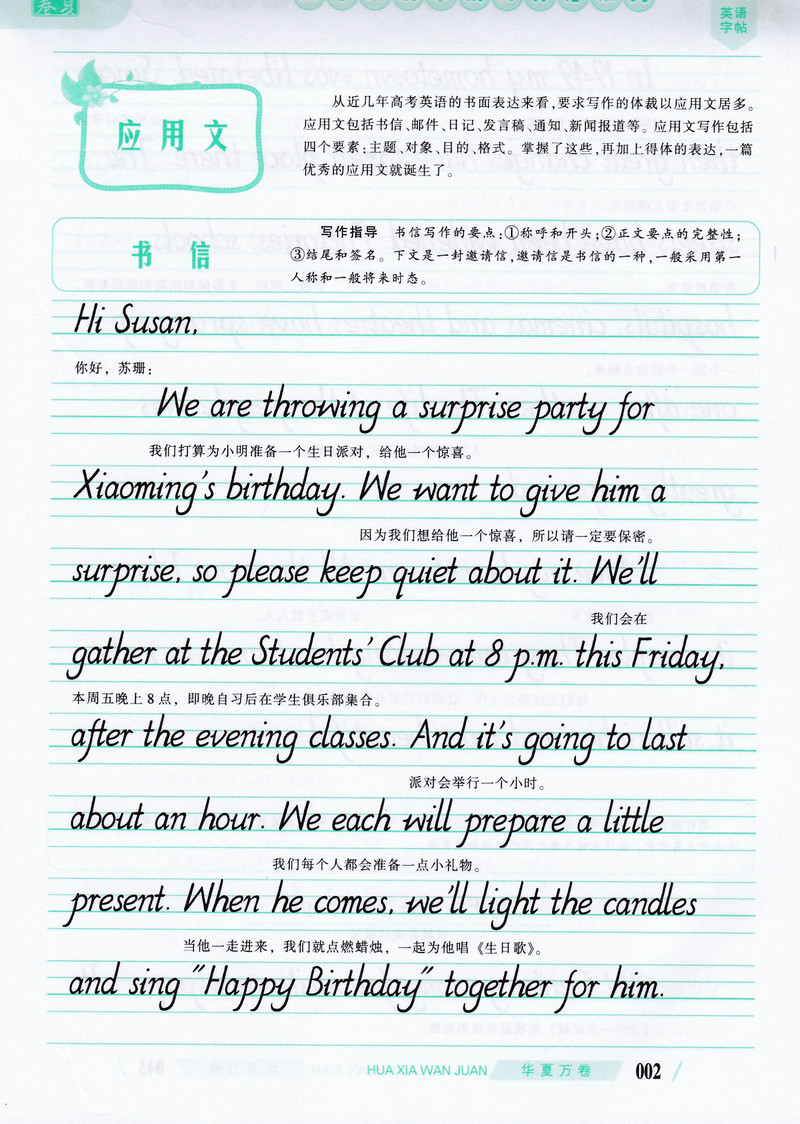 英语
字帖
应用文
从近几年高考英语的书面表达来看,要求写作的体裁以应用文居多。
应用文包括书信、邮件、日记、发言稿、通知、新闻报道等。应用文写作包括
四个要素:主题、对象、目的、格式。掌握了这些,再加上得体的表达,一篇
优秀的应用文就诞生了。
书信
写作指导 书信写作的要点:①称呼和开头;②正文要点的完整性;
③结尾和签名。下文是一封邀请信,邀请信是书信的一种,一般采用第一
人称和一般将来时态。
Hi Susan,
你好，苏珊:
We are throwing a surprise party for
我们打算为小明准备一个生日派对，给他一个惊喜。
Xiaoming's birthday. We want to give him a
因为我们想给他一个惊喜，所以请一定要保密。
surprise, so please keep quiet about it. We'll
我们会在
gather at the Students' Club at 8 p.m. this Friday,
本周五晚上8点，即晚自习后在学生俱乐部集合。
after the evening classes. And it's going to last
派对会举行一个小时。
about an hour. We each will prepare a little
我们每个人都会准备一点小礼物。
present. When he comes, we'll light the candles
当他一走进来，我们就点燃蜡烛，一起为他唱《生日歌》。
and sing "Happy Birthday" together for him.
HUA XIA WAN JUAN 华夏万卷 002